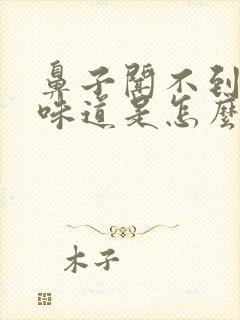 鼻子聞不到
味道是怎麼
木子